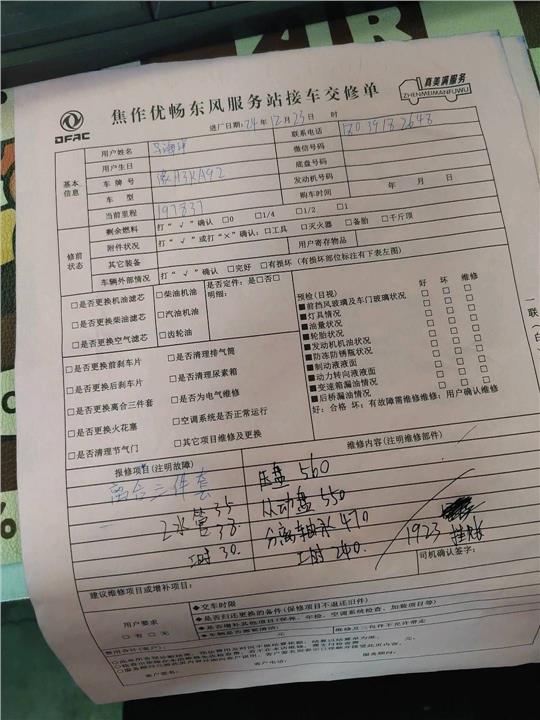 DFAC
焦作优畅东风服务站接车交修单
真美满服务
ZHENMEIMANFUWU
进厂日期：24年12月23日 时
基本信息
用户姓名
联系电话 18039182648
用户生日
微信号码
车牌号 豫H3KA92
底盘号码
车型
发动机号码
当前里程 197837
购车时间 年 月 日
修前状态
剩余燃料 打“√”确认 □0 □1/4 □1/2 □1
附件状况 打“√”或打“×”确认：□工具 □灭火器 □备胎 □千斤顶
其它装备 用户寄存物品
车辆外部情况 打“√”确认 □完好 □有损坏（有损坏部位标注有下表左图）
□是否更换机油滤芯 □柴油机油
□是否更换柴油滤芯 □汽油机油
□是否更换空气滤芯 □齿轮油
是否定件：是□否□
明细：
□是否更换前刹车片 □是否清理排气筒
□是否更换后刹车片 □是否清理尿素箱
□是否更换离合三件套 □是否为电气维修
□是否更换火花塞 □空调系统是否正常运行
□是否清理节气门 □其它项目维修及更换
预检(目视) 好 坏 维修
■前挡风玻璃及车门玻璃状况 □ □ □
■灯具情况 □ □ □
■油量状况 □ □ □
■轮胎状况 □ □ □
■发动机机油状况 □ □ □
■防冻防锈瓶状况 □ □ □
■制动液液面 □ □ □
■动力转向液液面 □ □ □
■变速箱漏油情况 □ □ □
■后桥漏油情况 □ □ □
好：合格 坏：有故障需维修维修：用户确认维修
一联
报修项目(注明故障)
维修内容(注明维修部件)
离合三件套
压盘 560
2水管 35
从动盘 550
38.
分离轴承 470
工时 30.
工时 240.
1923 挂账
司机确认签字：
建议维修项目或增补项目：
用户要求
□有 □无
◆交车时限
◆是否归还更换的备件(保修项目不退还旧件)
◆是否增补其他项目(保养、年检、空调系统检查、加装项目等)
◆车辆是否需要清洁： 元
维修及三包件不允许带走
客户签名：
客户电话：
服务顾问：